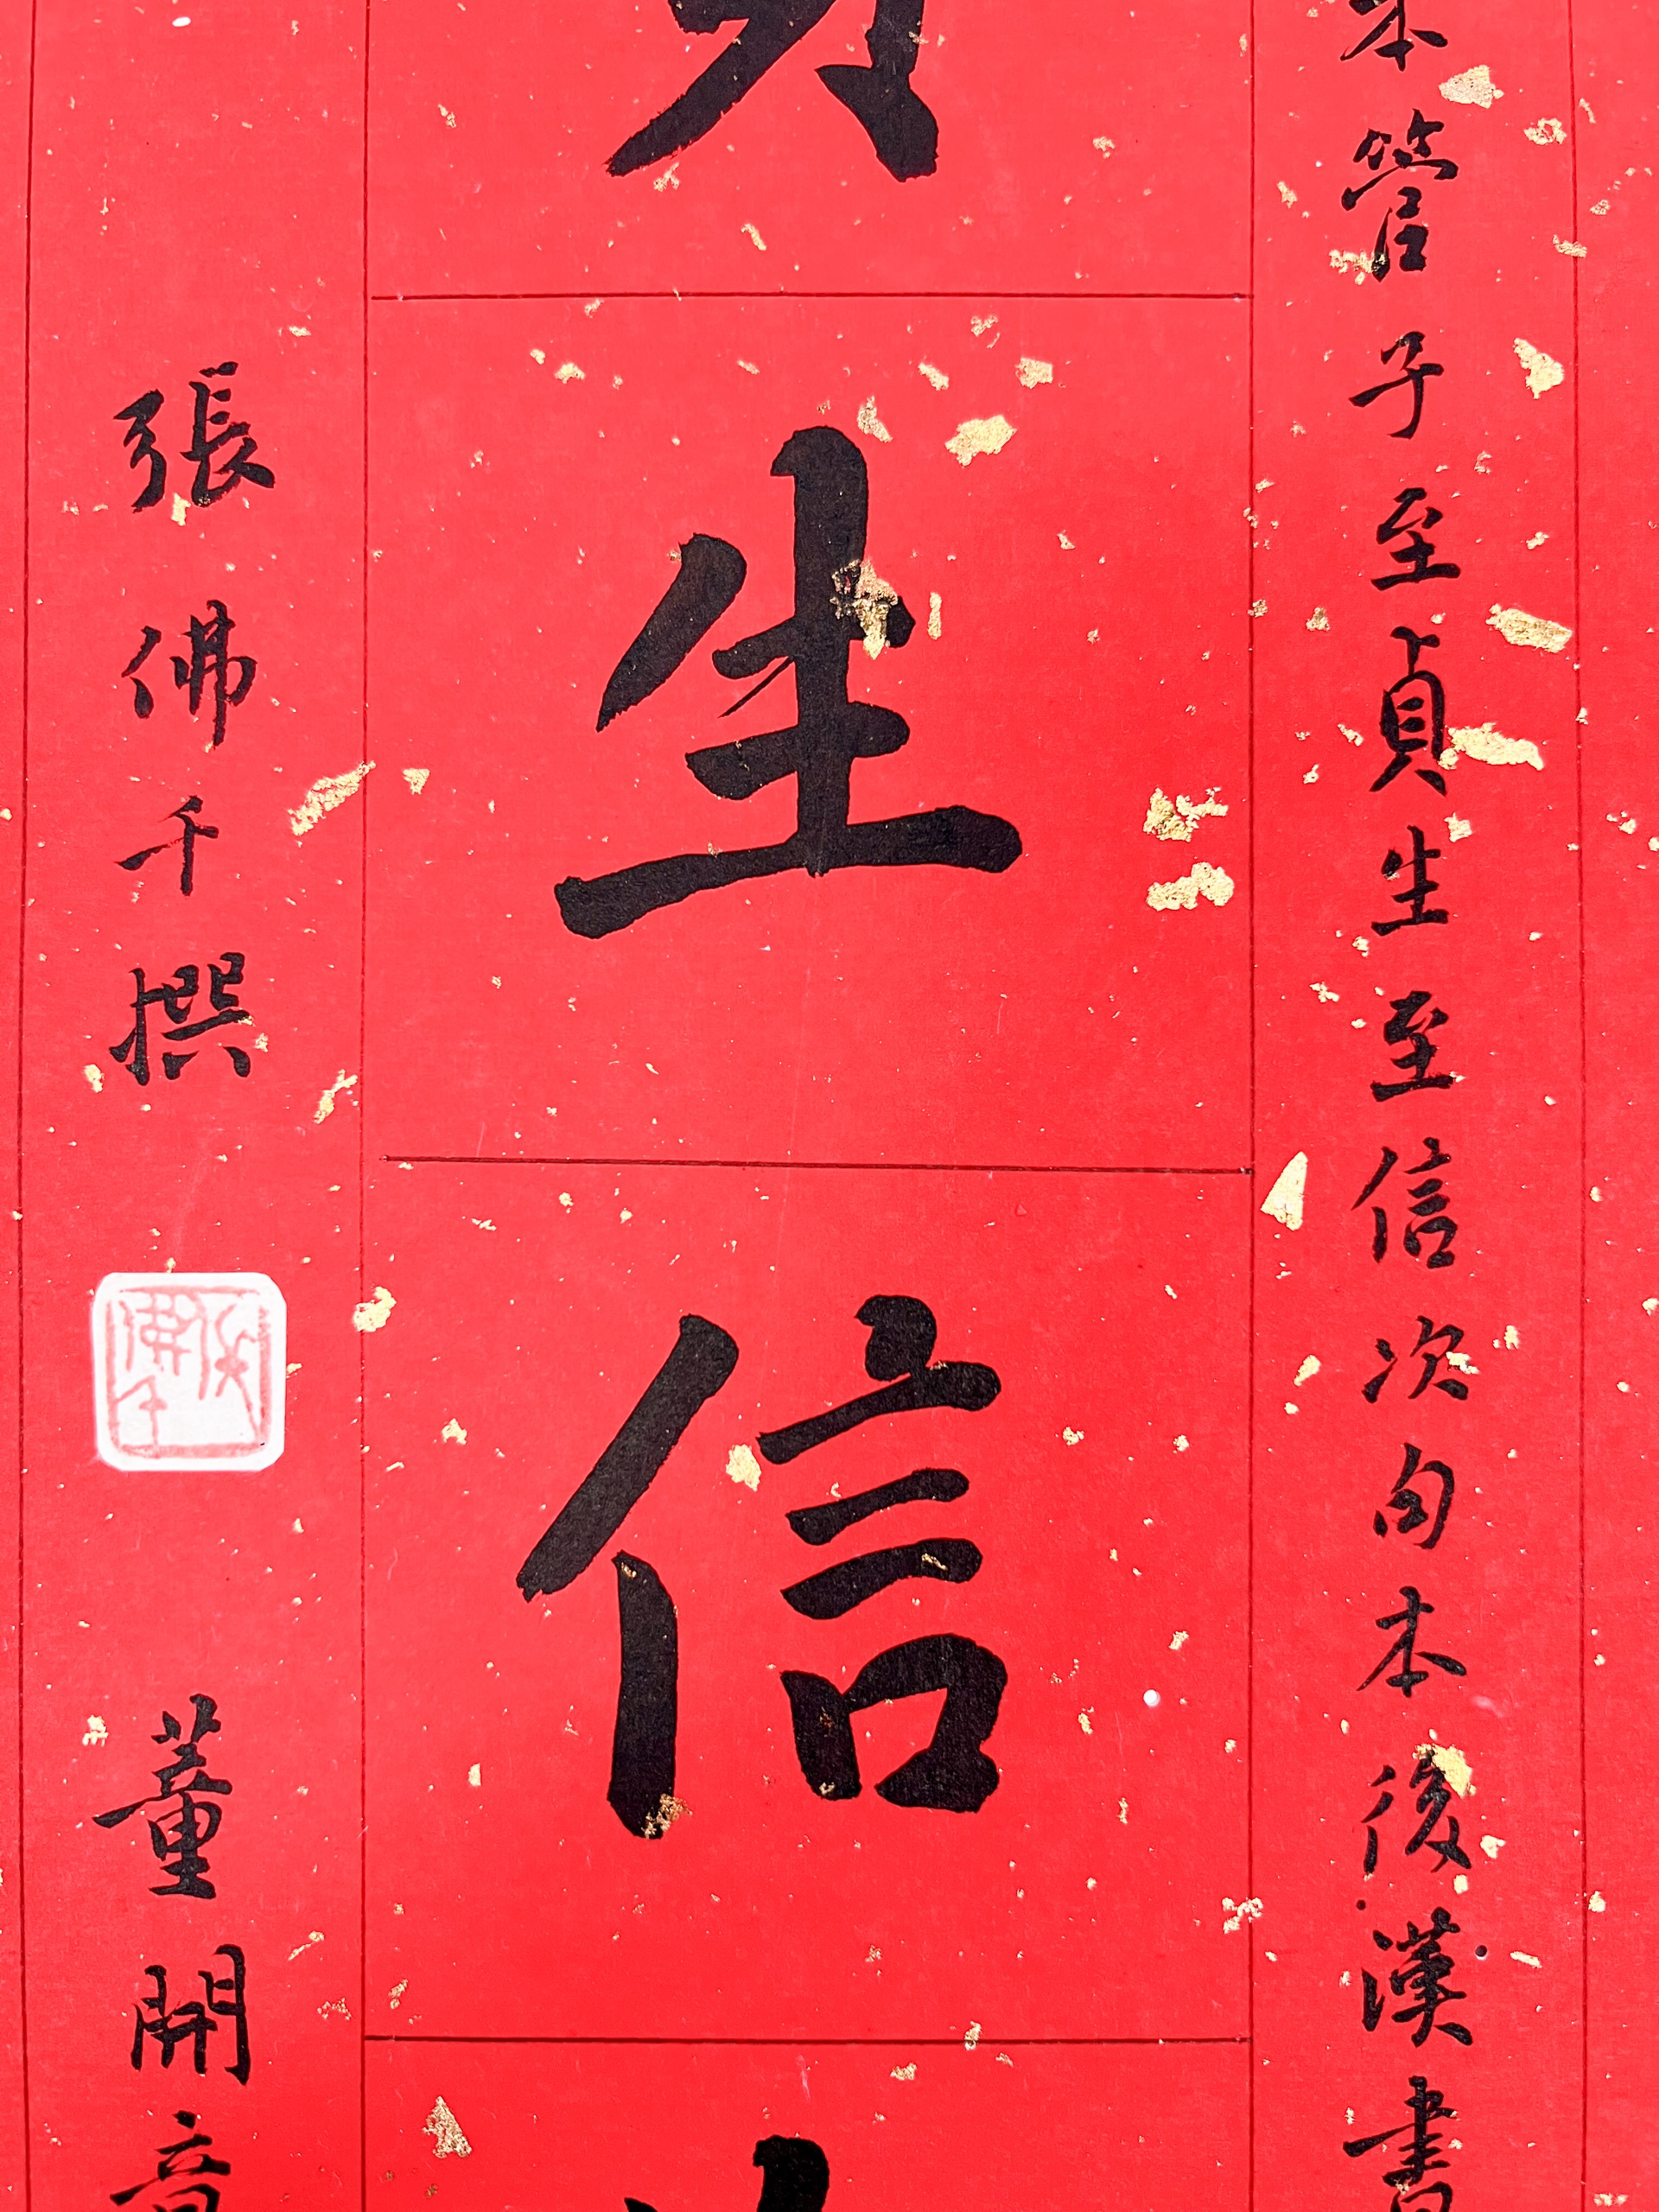 本管子至貞生至信次句本後漢書
生信
張佛千撰
董開章